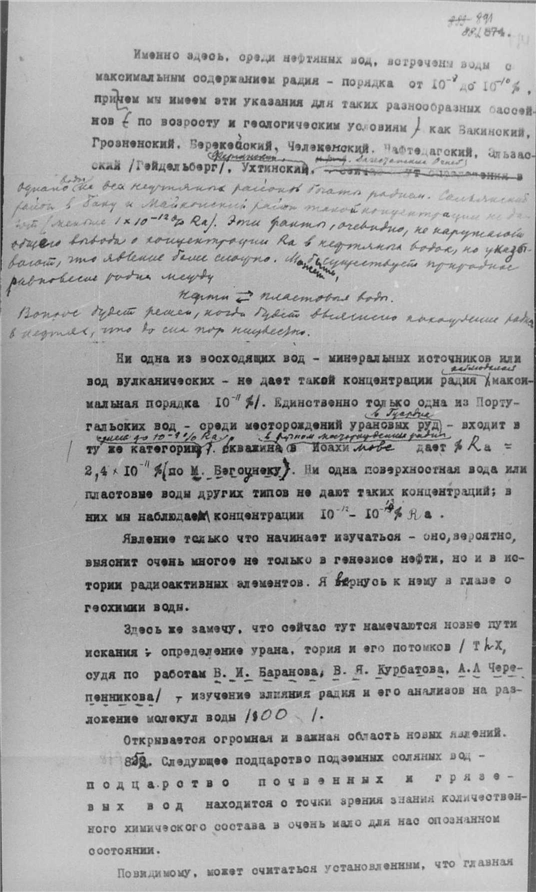 891
Именно здесь, среди нефтяных вод, встречены воды с
максимальным содержанием радия - порядка от 10⁻⁸ до 10⁻¹⁰%,
причем мы имеем эти указания для таких разнообразных бассей-
нов ( по возросту и геологическим условиям ) как Бакинский,
Грозненский, Берекейский, Челекенский, Нафтедагский, Эльзас-
ский /Гейдельберг/, Ухтинский.
однако не все нефтяные районы богаты радием.
район в Баку и Майкопский район такой концентрации не да-
ют /меньше 1×10⁻¹²% Ra/. Эти факты, очевидно, не нарушают
общего вывода о концентрации Ra в нефтяных водах, но указы-
вают, что явление более сложно. Может быть, существует природное
равновесие радия между
нефть ⇄ пластовая воды.
Вопрос будет решен, когда будет выяснено нахождение радия
в нефтях, что до сих пор неизвестно.
Ни одна из восходящих вод - минеральных источников или
вод вулканических - не дает такой концентрации радия /макси-
мальная порядка 10⁻¹¹%/. Единственно только одна из Порту-
гальских вод - среди месторождений урановых руд - входит в
ту же категорию. Скважина в Иоахимове дает % Ra =
2,4 × 10⁻¹¹% (по М. Бегоунеку). Ни одна поверхностная вода или
пластовые воды других типов не дают таких концентраций; в
них мы наблюдаем концентрации 10⁻¹² - 10⁻¹³% Ra.
Явление только что начинает изучаться - оно, вероятно,
выяснит очень многое не только в генезисе нефти, но и в ис-
тории радиоактивных элементов. Я вернусь к нему в главе о
геохимии воды.
Здесь же замечу, что сейчас тут намечаются новые пути
искания - определение урана, тория и его потомков / ThX,
судя по работам В. И. Баранова, В. Я. Курбатова, А.А Чере-
пенникова/ - изучение влияния радия и его анализов на раз-
ложение молекул воды /800 /.
Открывается огромная и важная область новых явлений.
Следующее подцарство подземных соляных вод -
подцарство почвенных и грязе-
вых вод находится с точки зрения знания количествен-
ного химического состава в очень мало для нас опознанном
состоянии.
Повидимому, может считаться установленным, что главная